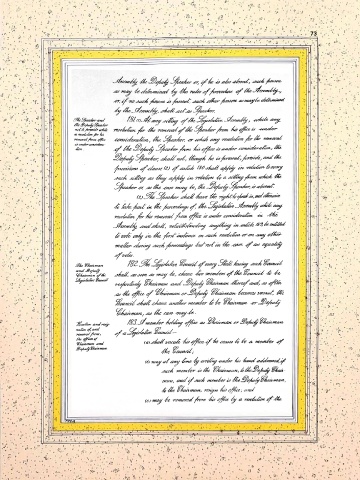 73
Assembly, the Deputy Speaker or, if he is also absent, such person
as may be determined by the rules of procedure of the Assembly,
or, if no such person is present, such other person as may be determined
by the Assembly, shall act as Speaker.
The Speaker and
the Deputy Speaker
not to preside while
a resolution for his
removal from office
is under considera-
tion.
181. (1) At any sitting of the Legislative Assembly, while any
resolution for the removal of the Speaker from his office is under
consideration, the Speaker, or while any resolution for the removal
of the Deputy Speaker from his office is under consideration, the
Deputy Speaker, shall not, though he is present, preside, and the
provisions of clause (2) of article 180 shall apply in relation to every
such sitting as they apply in relation to a sitting from which the
Speaker or, as the case may be, the Deputy Speaker is absent.
(2) The Speaker shall have the right to speak in, and otherwise
to take part in the proceedings of, the Legislative Assembly while any
resolution for his removal from office is under consideration in the
Assembly and shall, notwithstanding anything in article 189, be entitled
to vote only in the first instance on such resolution or on any other
matter during such proceedings but not in the case of an equality
of votes.
The Chairman
and Deputy
Chairman of the
Legislative Council
182. The Legislative Council of every State having such Council
shall, as soon as may be, choose two members of the Council to be
respectively Chairman and Deputy Chairman thereof and, so often
as the office of Chairman or Deputy Chairman becomes vacant, the
Council shall choose another member to be Chairman or Deputy
Chairman, as the case may be.
Vacation and resig-
nation of, and
removal from,
the offices of
Chairman and
Deputy Chairman
183. A member holding office as Chairman or Deputy Chairman
of a Legislative Council—
(a) shall vacate his office if he cease to be a member of
the Council;
(b) may at any time by writing under his hand addressed, if
such member is the Chairman, to the Deputy Chair-
man, and if such member is the Deputy Chairman,
to the Chairman, resign his office; and
(c) may be removed from his office by a resolution of the